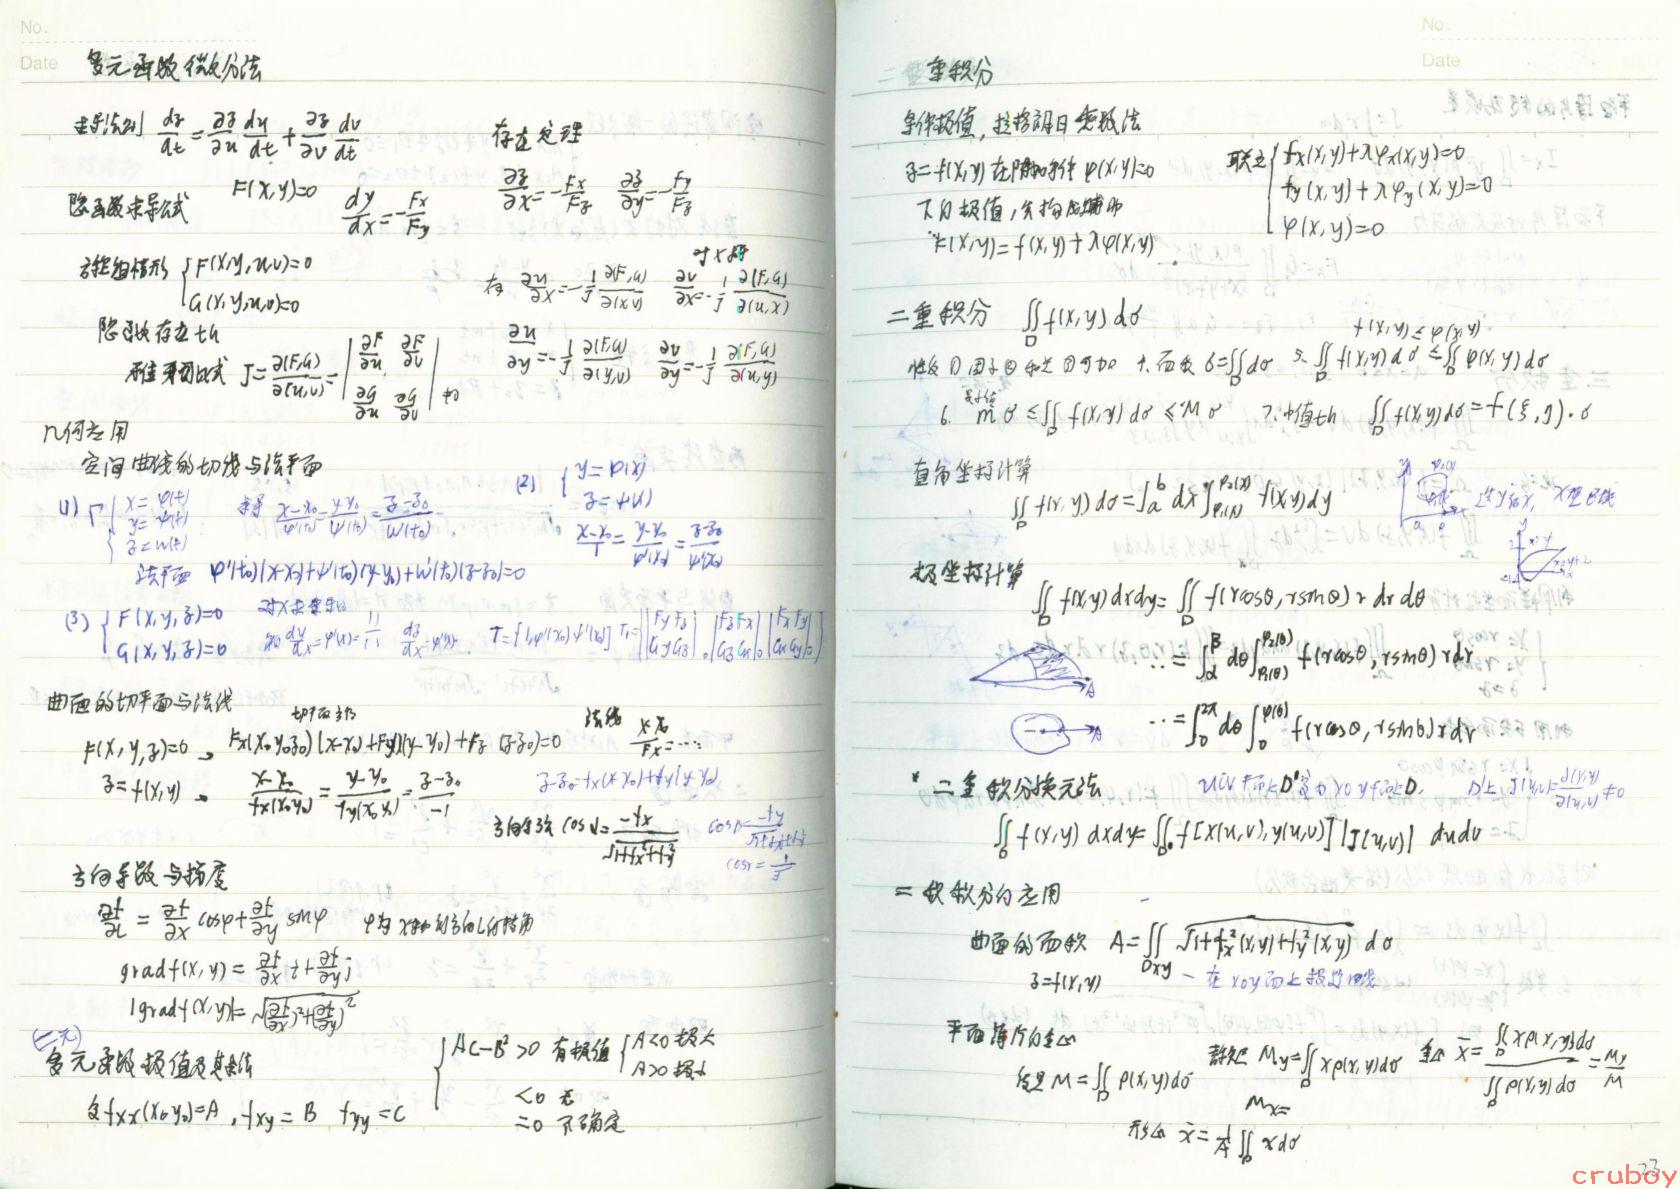 No.
Date
多元函数微分法
求导法则 dz/dt = ∂z/∂u du/dt + ∂z/∂v dv/dt 存在定理
隐函数求导公式 F(x,y)=0 dy/dx = -Fx/Fy ∂z/∂x = -Fx/Fz ∂z/∂y = -Fy/Fz
方程组情形 { F(x,y,u,v)=0
G(x,y,u,v)=0
对x求
有 ∂u/∂x = -1/J ∂(F,G)/∂(x,v) ∂v/∂x = -1/J ∂(F,G)/∂(u,x)
隐函数存在
雅可比式 J = ∂(F,G)/∂(u,v) = | ∂F/∂u ∂F/∂v ∂G/∂u ∂G/∂v | ≠0
∂u/∂y = -1/J ∂(F,G)/∂(y,v) ∂v/∂y = -1/J ∂(F,G)/∂(u,y)
几何应用
空间曲线的切线与法平面
(1) Γ { x=φ(t)
y=ψ(t)
z=w(t)
(x-x0)/φ'(t0) = (y-y0)/ψ'(t0) = (z-z0)/w'(t0)
法平面 φ'(t0)(x-x0)+ψ'(t0)(y-y0)+w'(t0)(z-z0)=0
(2) { y=φ(x)
z=ψ(x)
(x-x0)/1 = (y-y0)/φ'(x0) = (z-z0)/ψ'(x0)
(3) { F(x,y,z)=0
G(x,y,z)=0
对x求
dy/dx = φ'(x) = dz/dx = ψ'(x) T={1,φ'(x0) ψ'(x0)} T1={ |Fy Fz Gy Gz|0 |Fz Fx Gz Gx|0 |Fx Fy Gx Gy|0 }
曲面的切平面与法线
切平面方程 法线
F(x,y,z)=0 、 Fx(x0 y0 z0)(x-x0)+Fy()(y-y0)+Fz (z-z0)=0 (x-x0)/Fx = …
z=f(x,y) 、 (x-x0)/fx(x0 y0) = (y-y0)/fy(x0 y0) = (z-z0)/-1 z-z0=fx(x-x0)+fy(y-y0)
方向余弦 cosα = -fx/√(1+fx²+fy²) cosβ = -fy/√(1+fx²+fy²)
cosγ = 1/
方向导数与梯度
∂f/∂l = ∂f/∂x cosφ + ∂f/∂y sinφ φ为x轴到方向l的转角
grad f(x,y) = ∂f/∂x i + ∂f/∂y j
|grad f(x,y)| = √((∂f/∂x)²+(∂f/∂y)²)
(二元)
多元函数极值及其求法
{ AC-B²>0 有极值 { A<0 极大
A>0 极小
<0 无
=0 不确定
令fxx(x0 y0)=A , fxy=B fyy=C
No.
Date
二重积分
条件极值，拉格朗日乘数法
z=f(x,y)在附加条件 φ(x,y)=0
下的极值，先构成辅助
F(x,y)=f(x,y)+λφ(x,y)
联立 { fx(x,y)+λφx(x,y)=0
fy(x,y)+λφy(x,y)=0
φ(x,y)=0
二重积分 ∬D f(x,y)dσ
f(x,y)≤φ(x,y)
性质 4.面积 σ=∬D dσ 5. ∬D f(x,y)dσ ≤ ∬D φ(x,y)dσ
6. mσ ≤ ∬D f(x,y)dσ ≤ Mσ 7.中值th ∬D f(x,y)dσ=f(ξ,η)·σ
直角坐标计算
∬D f(x,y)dσ = ∫a^b dx ∫φ1(x)^φ2(x) f(x,y)dy
X型区域
极坐标计算
∬D f(x,y)dxdy = ∬D f(rcosθ,rsinθ) r dr dθ
∴ = ∫α^β dθ ∫φ1(θ)^φ2(θ) f(rcosθ,rsinθ) rdr
A
∴ = ∫0^2π dθ ∫0^φ(θ) f(rcosθ,rsinθ) rdr
A
* 二重积分换元法 uov平面上D'变为xoy平面上D. D'上 J(u,v)=∂(x,y)/∂(u,v)≠0
∬D f(x,y)dxdy = ∬D' f[x(u,v),y(u,v)] |J(u,v)| dudv
二重积分的应用
曲面的面积 A=∬Dxy √(1+fx²(x,y)+fy²(x,y)) dσ
z=f(x,y) — 在xoy面上投影
平面薄片的重心
质量 M=∬D ρ(x,y)dσ 静矩 My=∬D xρ(x,y)dσ 重心 x̄ = ∬D xρ(x,y)dσ / ∬D ρ(x,y)dσ = My/M
Mx=
形心 x̄ = 1/A ∬D xdσ
23
cruboy